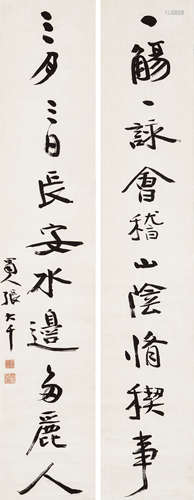 一觴一詠會稽山陰脩禊事
三月三日長安水邊多麗人
蜀人張大千